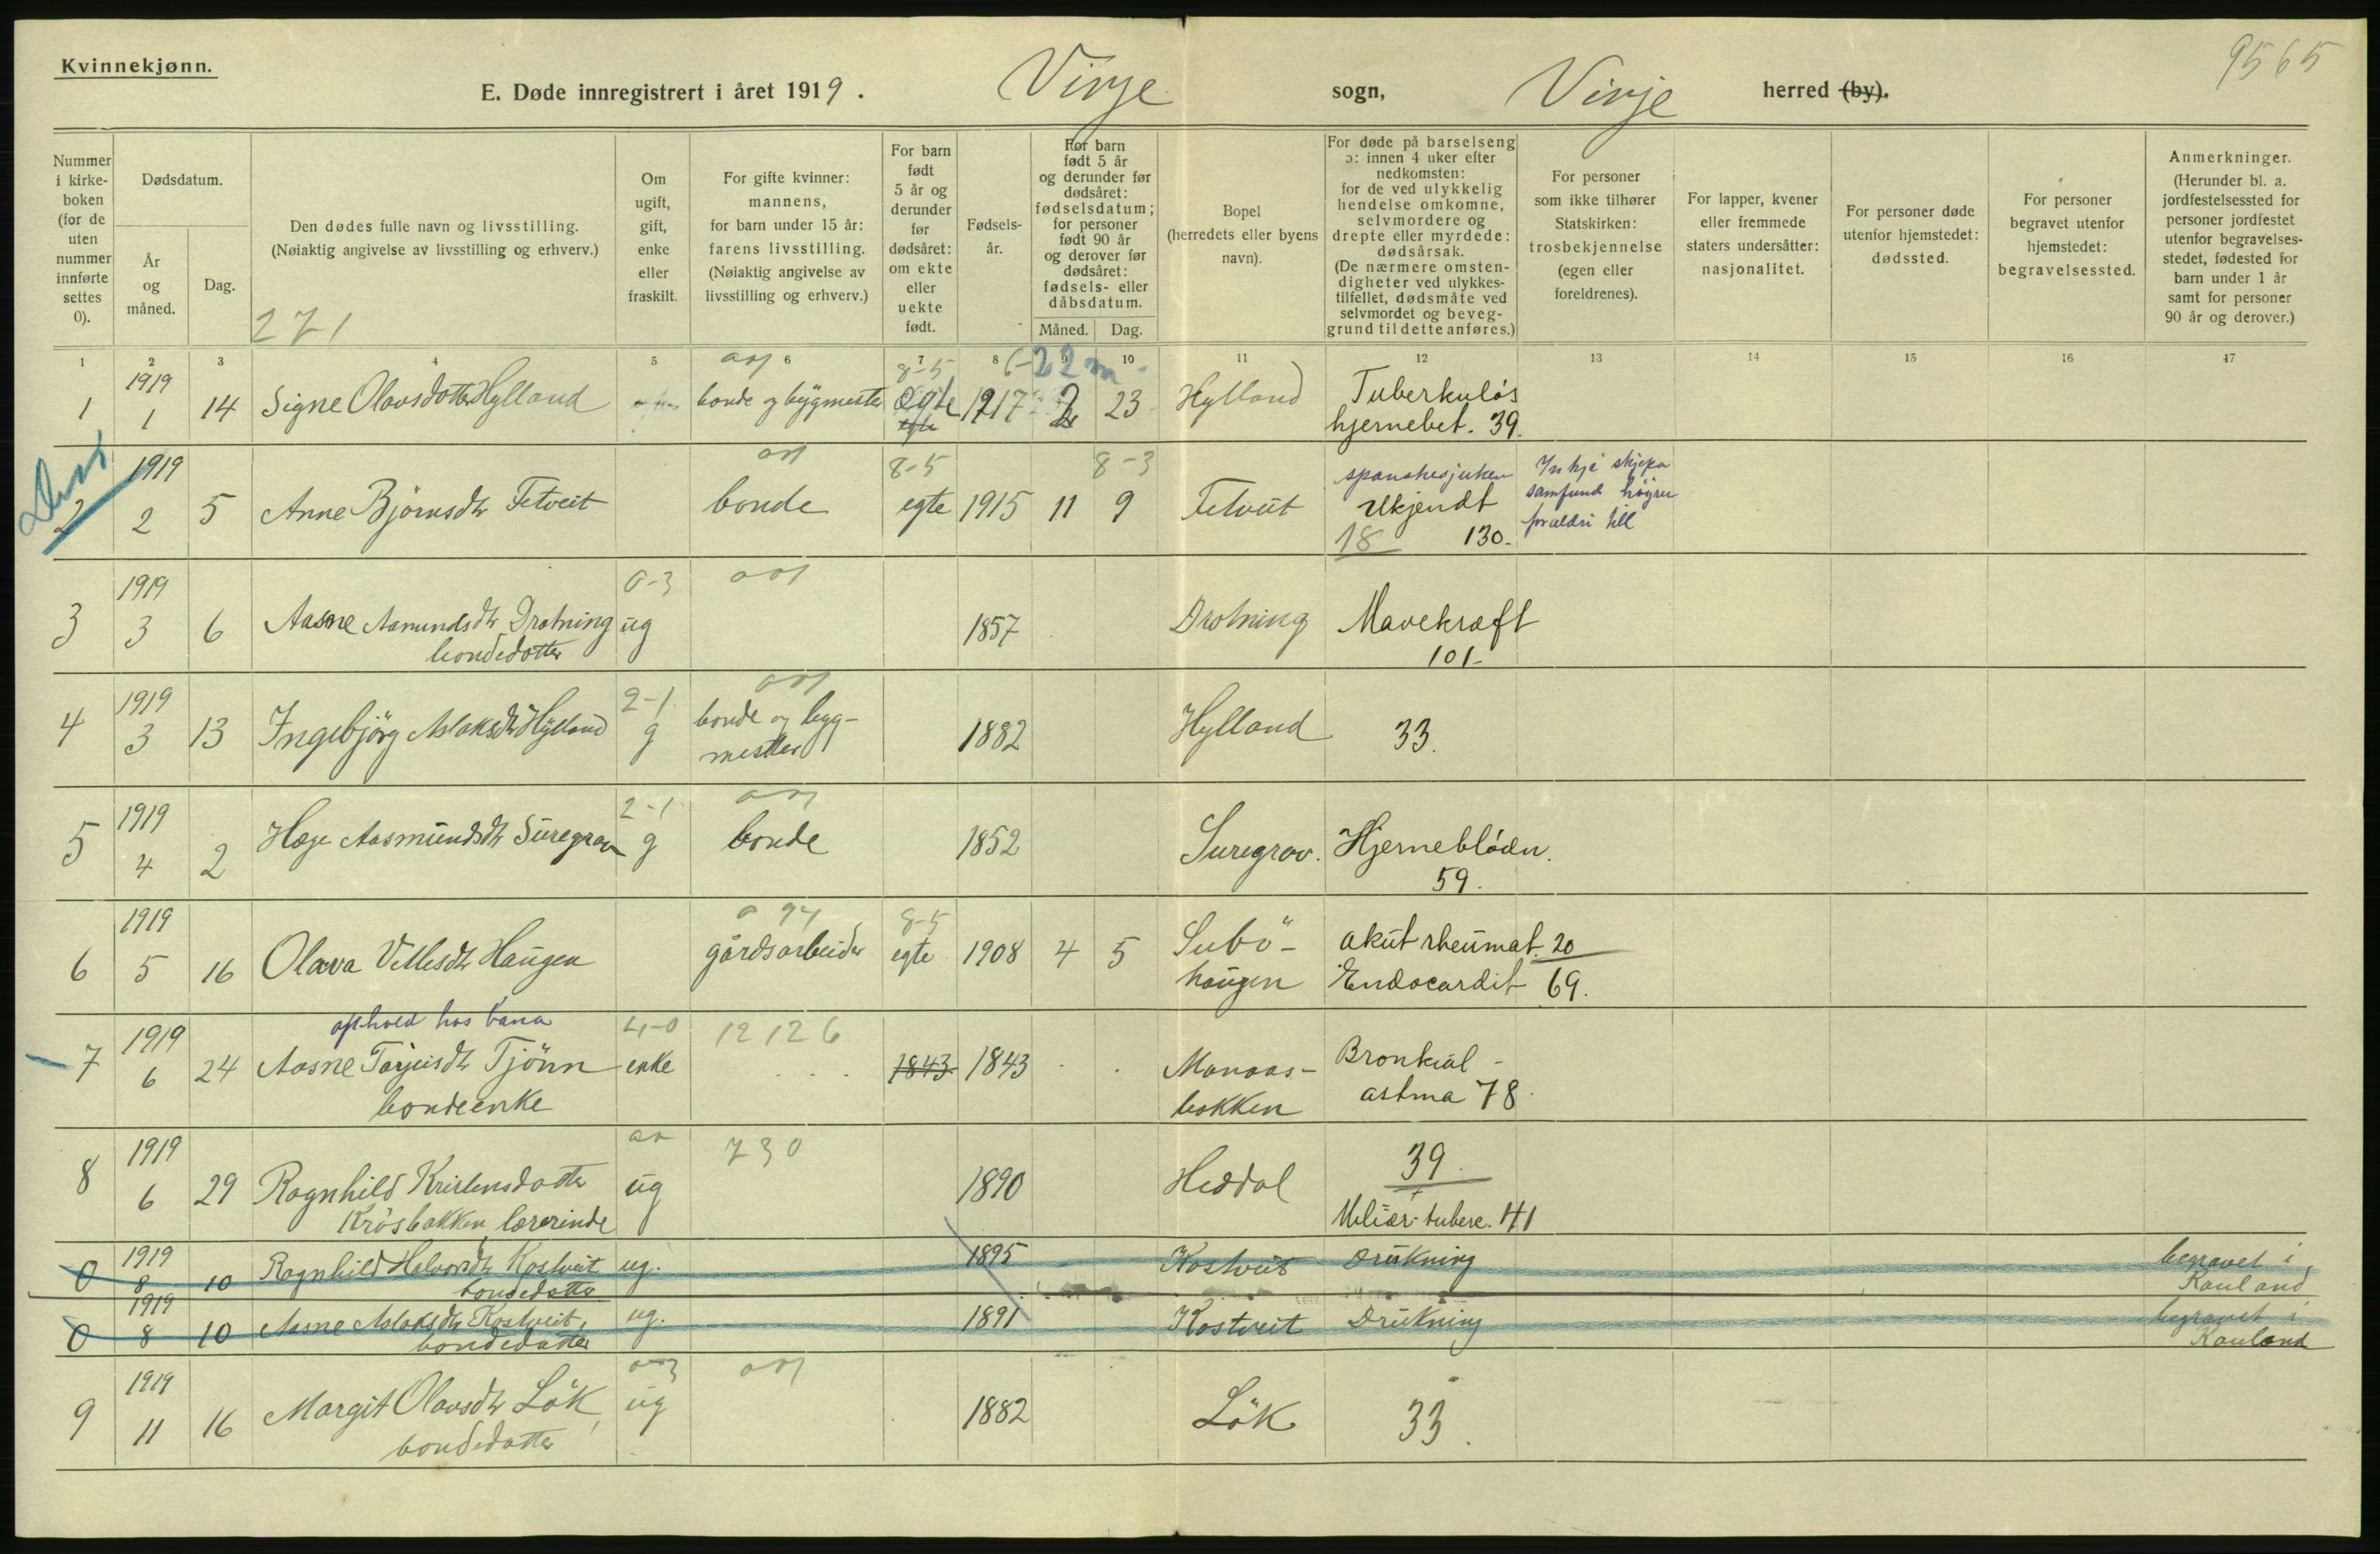 Kvinnekjønn.
9565
E. Døde innregistrert i året 1919. Vinje sogn, Vinje herred (by).
Nummer i kirkeboken (for de uten nummer innførte settes 0).
Dødsdatum.
År og måned.
Dag.
Den dødes fulle navn og livsstilling.
(Nøiaktig angivelse av livsstilling og erhverv.)
271
Om ugift, gift, enke eller fraskilt.
For gifte kvinner: mannens, for barn under 15 år: farens livsstilling.
(Nøiaktig angivelse av livsstilling og erhverv.)
For barn født 5 år og derunder før dødsåret: om ekte eller uekte født.
Fødselsår.
For barn født 5 år og derunder før dødsåret: fødselsdatum; for personer født 90 år og derover før dødsåret: fødsels- eller dåbsdatum.
Måned. Dag.
Bopel (herredets eller byens navn).
For døde på barselseng ɔ: innen 4 uker efter nedkomsten: for de ved ulykkelig hendelse omkomne, selvmordere og drepte eller myrdede: dødsårsak.
(De nærmere omstendigheter ved ulykkestilfellet, dødsmåte ved selvmordet og beveggrund til dette anføres.)
For personer som ikke tilhører Statskirken: trosbekjennelse (egen eller foreldrenes).
For lapper, kvener eller fremmede staters undersåtter: nasjonalitet.
For personer døde utenfor hjemstedet: dødssted.
For personer begravet utenfor hjemstedet: begravelsessted.
Anmerkninger.
(Herunder bl. a. jordfestelsessted for personer jordfestet utenfor begravelsesstedet, fødested for barn under 1 år samt for personer 90 år og derover.)
1 2 3 4 5 6 7 8 9 10 11 12 13 14 15 16 47
8-5 22 m
1 1919 1 14 Signe Olavsdotter Hylland bonde og bygmester egte 1917 2 23 Hylland Tuberkuløs
hjernebet. 39.
8-5 8-3
2 1919 2 5 Anne Bjørnsdtr Fetveit bonde egte 1915 11 9 Fetveit spanskesjuken
Ukjendt
18 130.
Inkje skjepa
samfund høyrer
forældri till
0-3
3 1919 3 6 Aasne Aamundsdtr Drotning ug 1857 Drotning Mavekræft
bondedotter 101-
2-1
4 1919 3 13 Ingebjörg Aslaksdtr Hylland g bonde og byg-
mester 1882 Hylland 33.
2-1
5 1919 4 2 Hæge Aasmundsdtr Suregrav g bonde 1852 Suregrav. Hjernebløðn.
59.
8-5
6 1919 5 16 Olava Vetlesdtr Haugen gårdsarbeider egte 1908 4 5 Subö-
haugen akut rheumat. 20
Endocardit 69.
ophold hos bana 4-0 12126
7 1919 6 24 Aasne Tarjeisdtr Tjönn enke 1843 1843 Manaas-
bakken Bronkial-
astma 78.
bondeenke
730
8 1919 6 29 Ragnhild Kristensdotter ug 1890 Heddal 39.
Krösbakken, lærerinde Miliær-tuberc. 41
0 1919 8 10 Ragnhild Halvorsdtr Kostveit ug. 1895 Kostveit Drukning begravet i
bondedotter Rauland
0 1919 8 10 Aasne Aslaksdtr Kostveit, ug. 1891 Kostveit Drukning begravet i
bondedotter Rauland
9 1919 11 16 Margit Olavsdtr Lök, ug 1882 Lök 33.
bondedotter